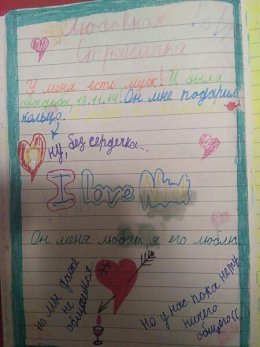 Любовная
Страничка
У меня есть муж! И была
свадьба, 19.11.14. Он мне подарил
кольцо.
Ну, без сердечка...
I love
Он меня любит, я его люблю
но мы даже
не
общаемся
Но у нас пока нету
ничего
общего